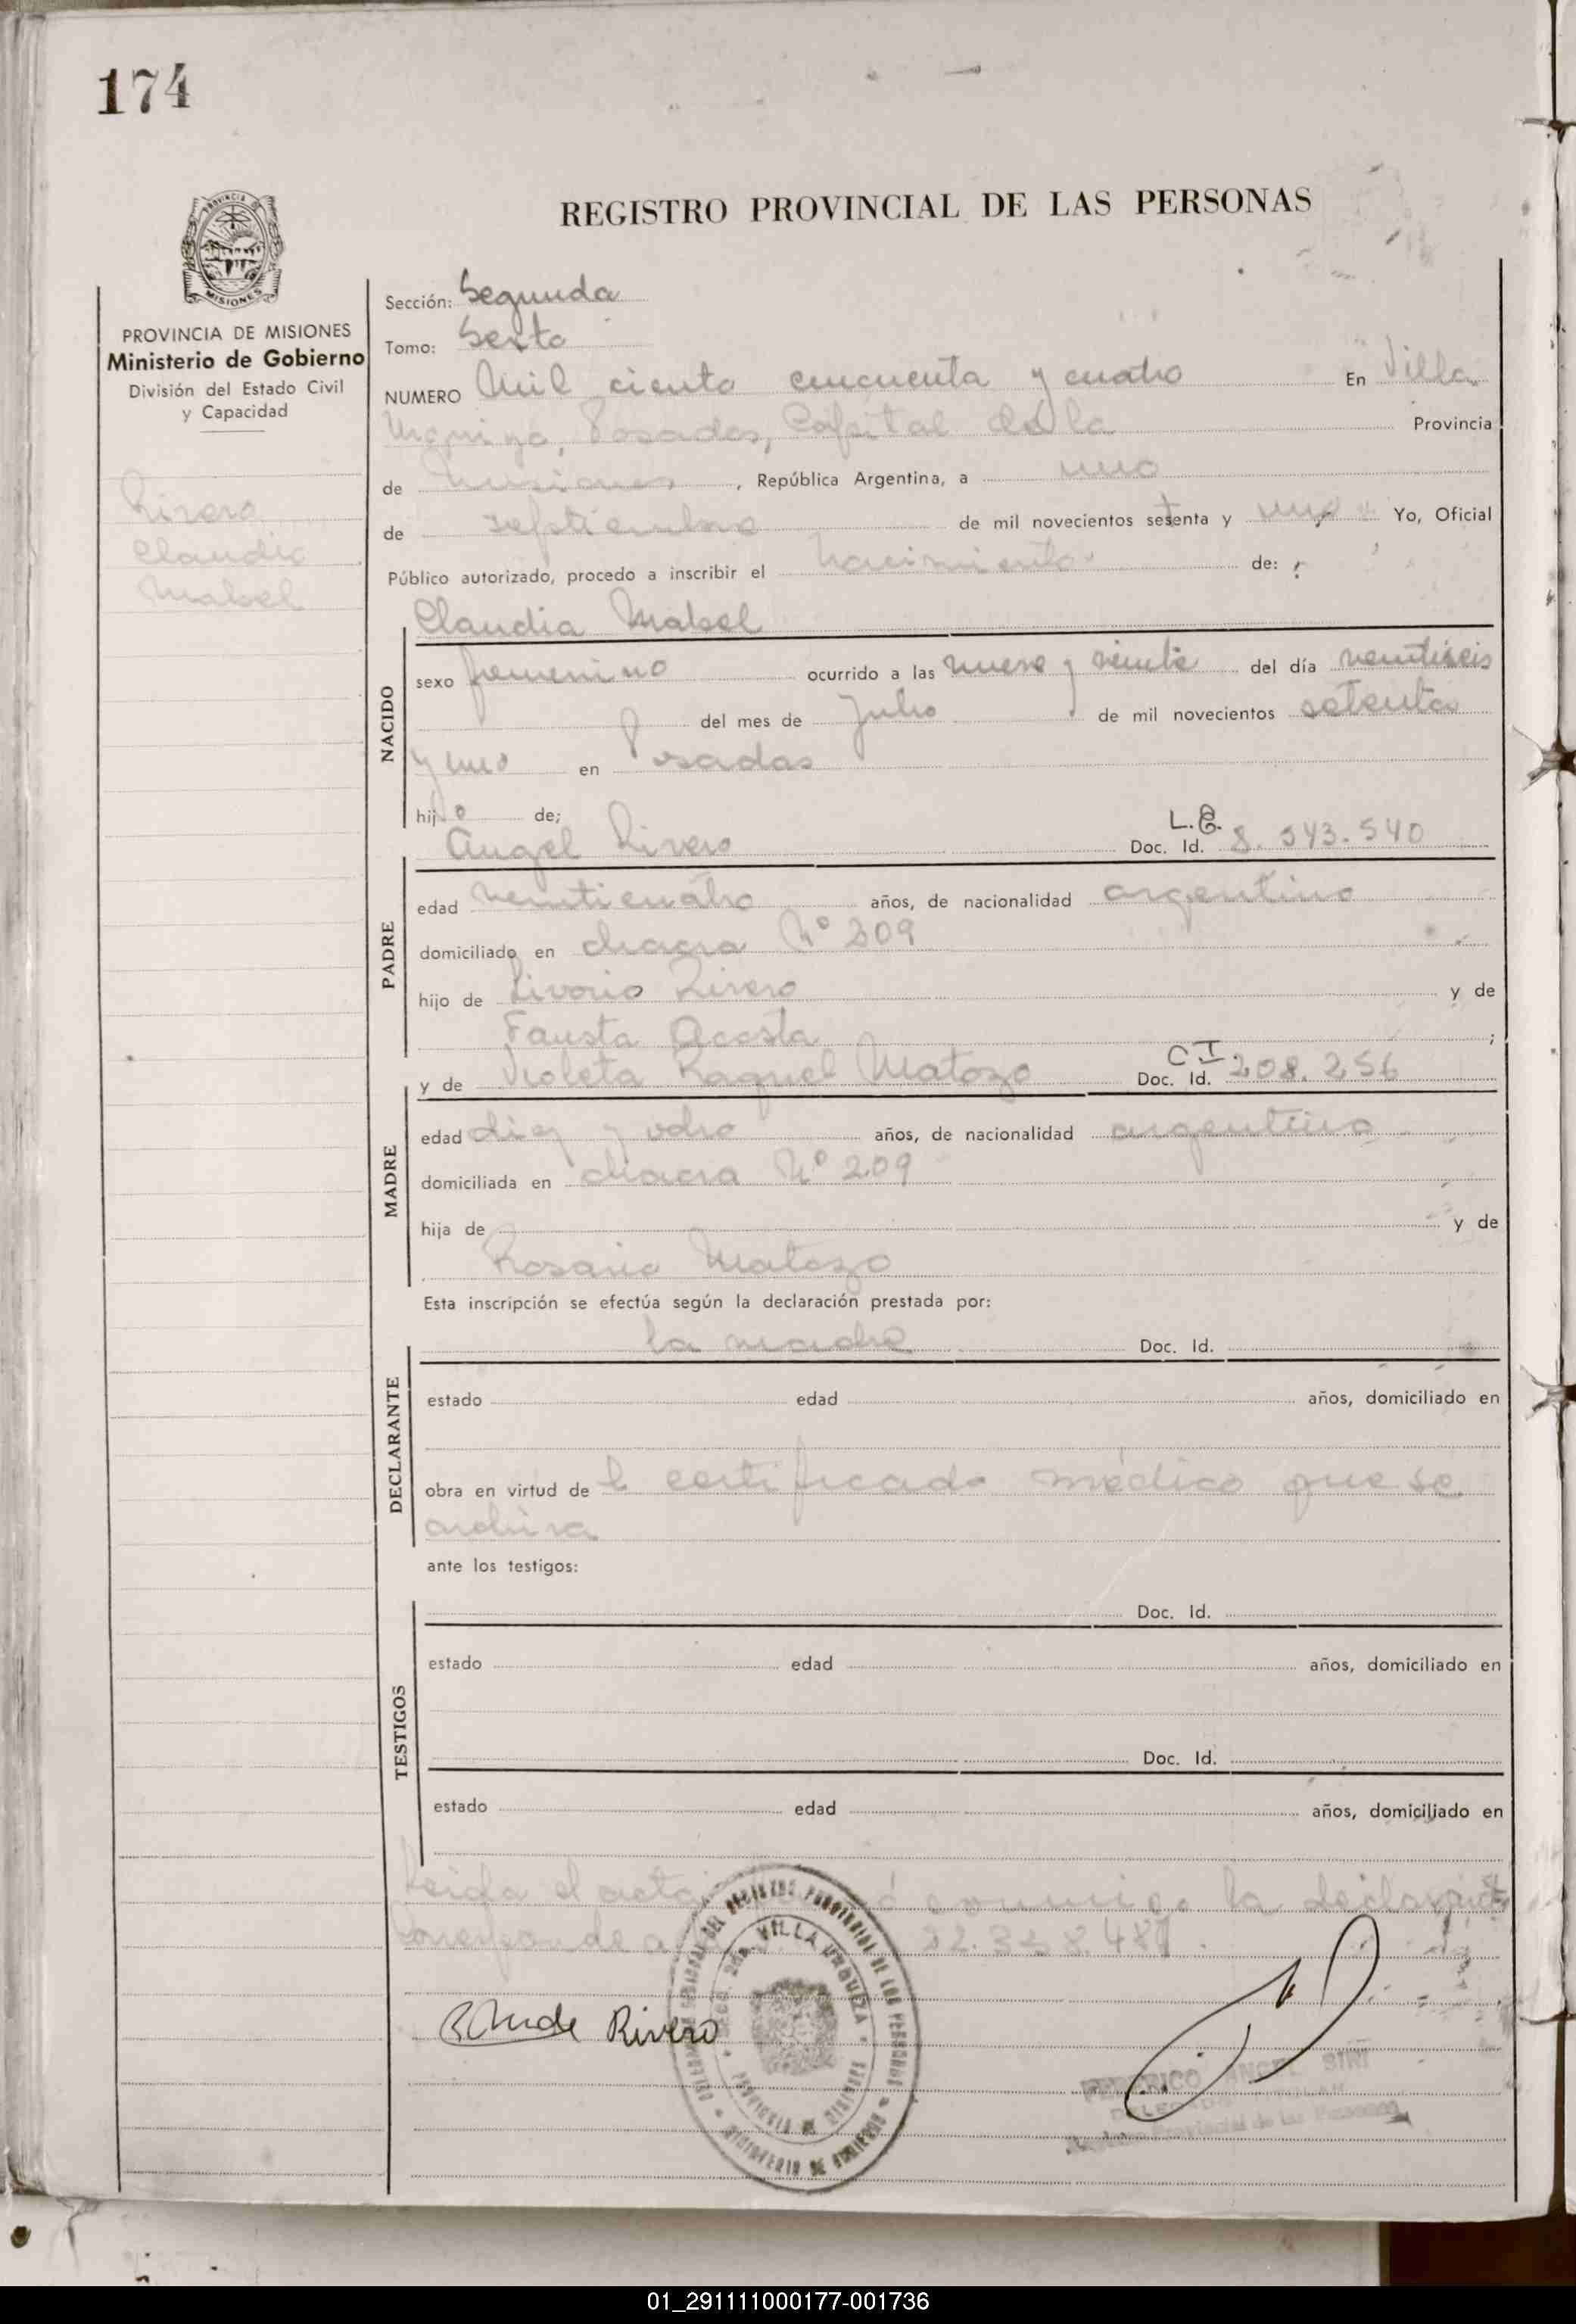 174
REGISTRO PROVINCIAL DE LAS PERSONAS
PROVINCIA DE MISIONES
Ministerio de Gobierno
División del Estado Civil
y Capacidad
Rivero
Claudia
Mabel
Sección: Segunda
Tomo: Sexto
NUMERO Mil ciento cincuenta y cuatro En Villa
Urquiza, Posadas, Capital de la Provincia
de Misiones, República Argentina, a uno
de septiembre de mil novecientos setenta y uno Yo, Oficial
Público autorizado, procedo a inscribir el nacimiento de:
Claudia Mabel
NACIDO
sexo femenino ocurrido a las nueve y veinte del día veintiseis
del mes de Julio de mil novecientos setenta
y uno en Posadas
hija de;
Angel Rivero L.E. Doc. Id. 8.543.540
PADRE
edad veinticuatro años, de nacionalidad argentino
domiciliado en chacra Nº 209
hijo de Livorio Rivero y de
Fausta Acosta;
y de Violeta Raquel Matozo C I. Doc. Id. 208.256
MADRE
edad diez y ocho años, de nacionalidad argentina
domiciliada en chacra Nº 209
hija de y de
Rosario Matozo
Esta inscripción se efectúa según la declaración prestada por:
la madre Doc. Id.
DECLARANTE
estado edad años, domiciliado en
obra en virtud del certificado médico que se
archiva
ante los testigos:
Doc. Id.
TESTIGOS
estado edad años, domiciliado en
Doc. Id.
estado edad años, domiciliado en
Leída el acta conmigo la declarante
Corresponde a
de Rivero
VILLA URQUIZA
PROVINCIA DE MISIONES
MINISTERIO DE GOBIERNO
FEDERICO ANGEL SIRI
DELEGADO TITULAR
Registro Provincial de las Personas
01_291111000177-001736